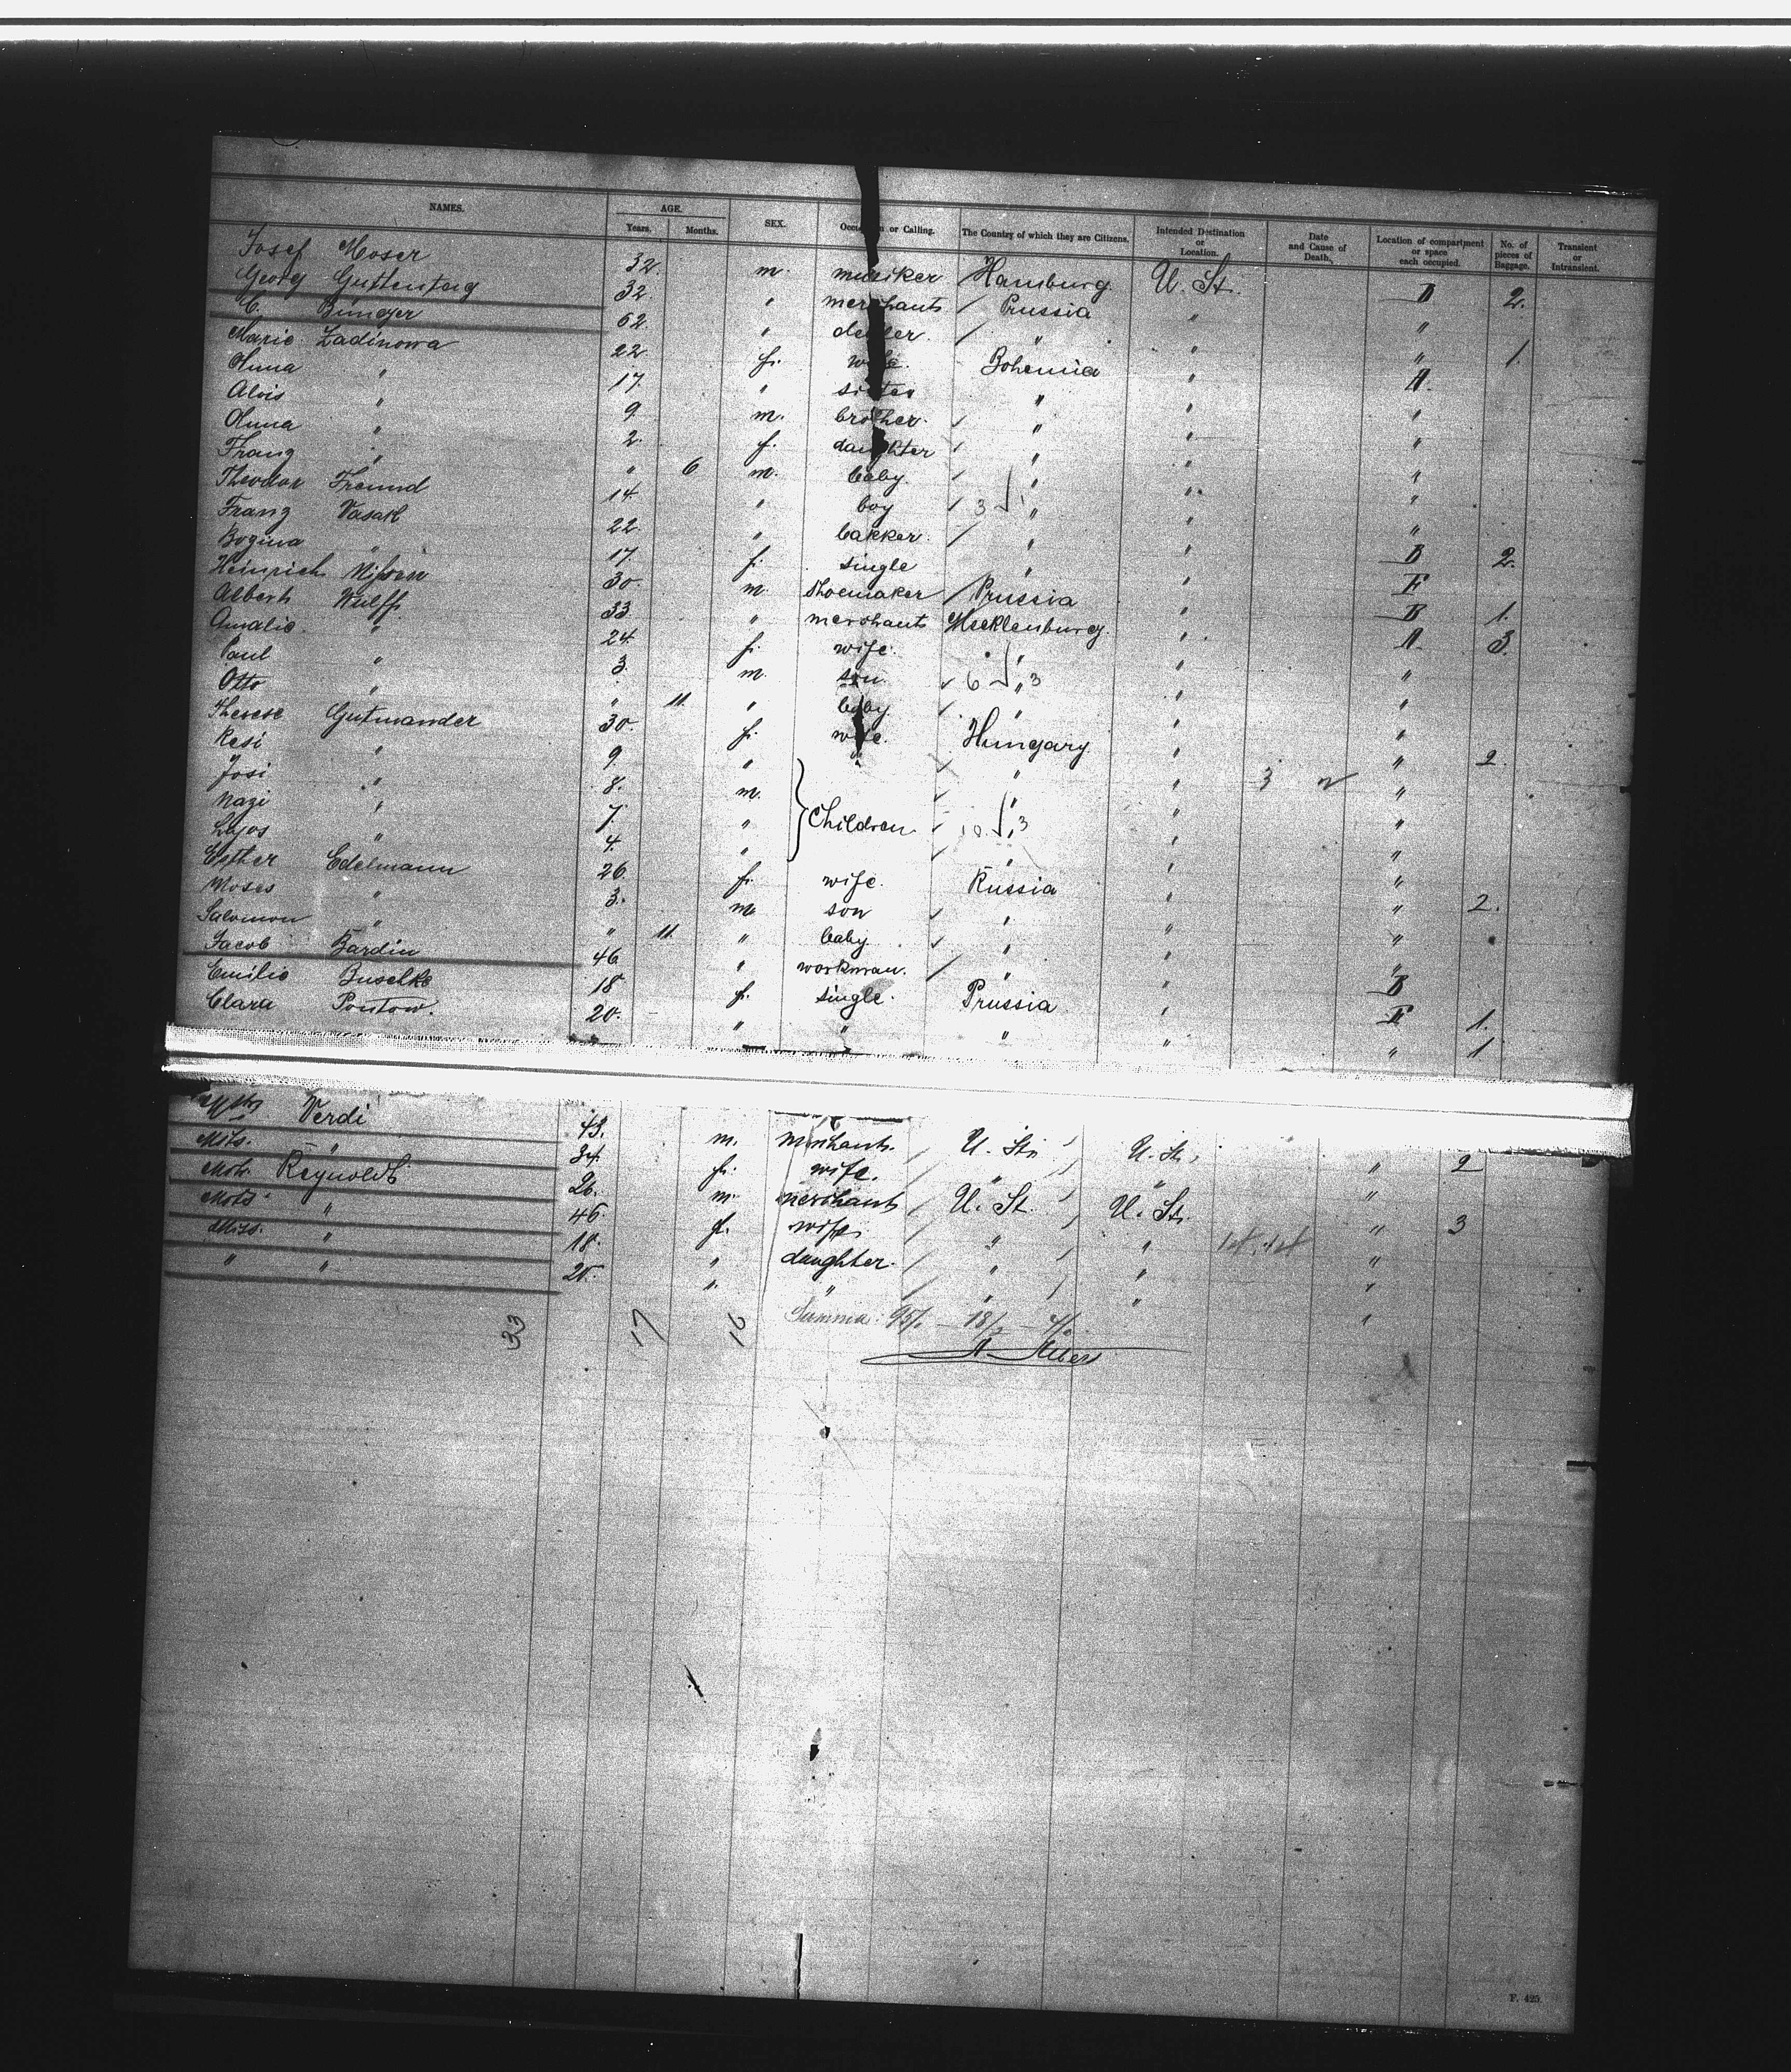 NAMES. AGE. Years. Months. SEX. or Calling. The Country of which they are Citizens. Intended Destination or Location. Date and Cause of Death. Location of compartment or space each occupied. No. of pieces of Baggage. Transient or Intransient.
Josef Moser 32. m. musiker Hamburg U. St. 2.
Georg Guttentag 32. " merchants / Prussia " "
C. 62. " dealer. / " " " 1.
Marie Ladinowa 22. f. wife. Bohemia "
Anna " 17. " sister " " "
Alois " 9. m. brother. " " "
Anna " 2. f. daughter " " "
Franz " " 6 m. baby " " "
Theodor Freund 14. " boy 3 " " "
Franz Vasak 22. " bakker. / " " B 2.
Bozina " 17. f. single " " F
Heinrich Nissen 30. m. Shoemaker / Prussia " B 1.
Albert Wulff 33 " merchants Mecklenburg. " 3.
Amalie " 24. f. wife. " " "
Paul " 3. m. son. 6 " 3 " "
Otto " " 11. " baby " " "
Therese Gutmander 30. f. wife. Hungary " " 2.
Resi " 9. " " " " 3 "
Josi " 8. m. " " "
Nazi " 7. " Children. 10 " 3 " "
Lajos " 4. " " " "
Esther Edelmann 26. f. wife. Russia " " 2.
Moses " 3. m. son " " "
Salomon " " 11. " baby " " "
Jacob Bardin 46 " workman. / " " B
Emilie Buselke 18 f. single. Prussia " F 1.
Clara Pontow. 20. " " " " " 1
Verdi 43. m. merchants. / U. St. U. St. " 2
" 34. f. wife. / " " "
Reynolds 26. m. merchant / U. St. U. St. " 3
" 46. f. wife / " " "
Miss. " 18. " daughter. / " " "
" " 20. " " / " " "
33 17 16 Summa: 95/ - 18/ - 4/
F. 425